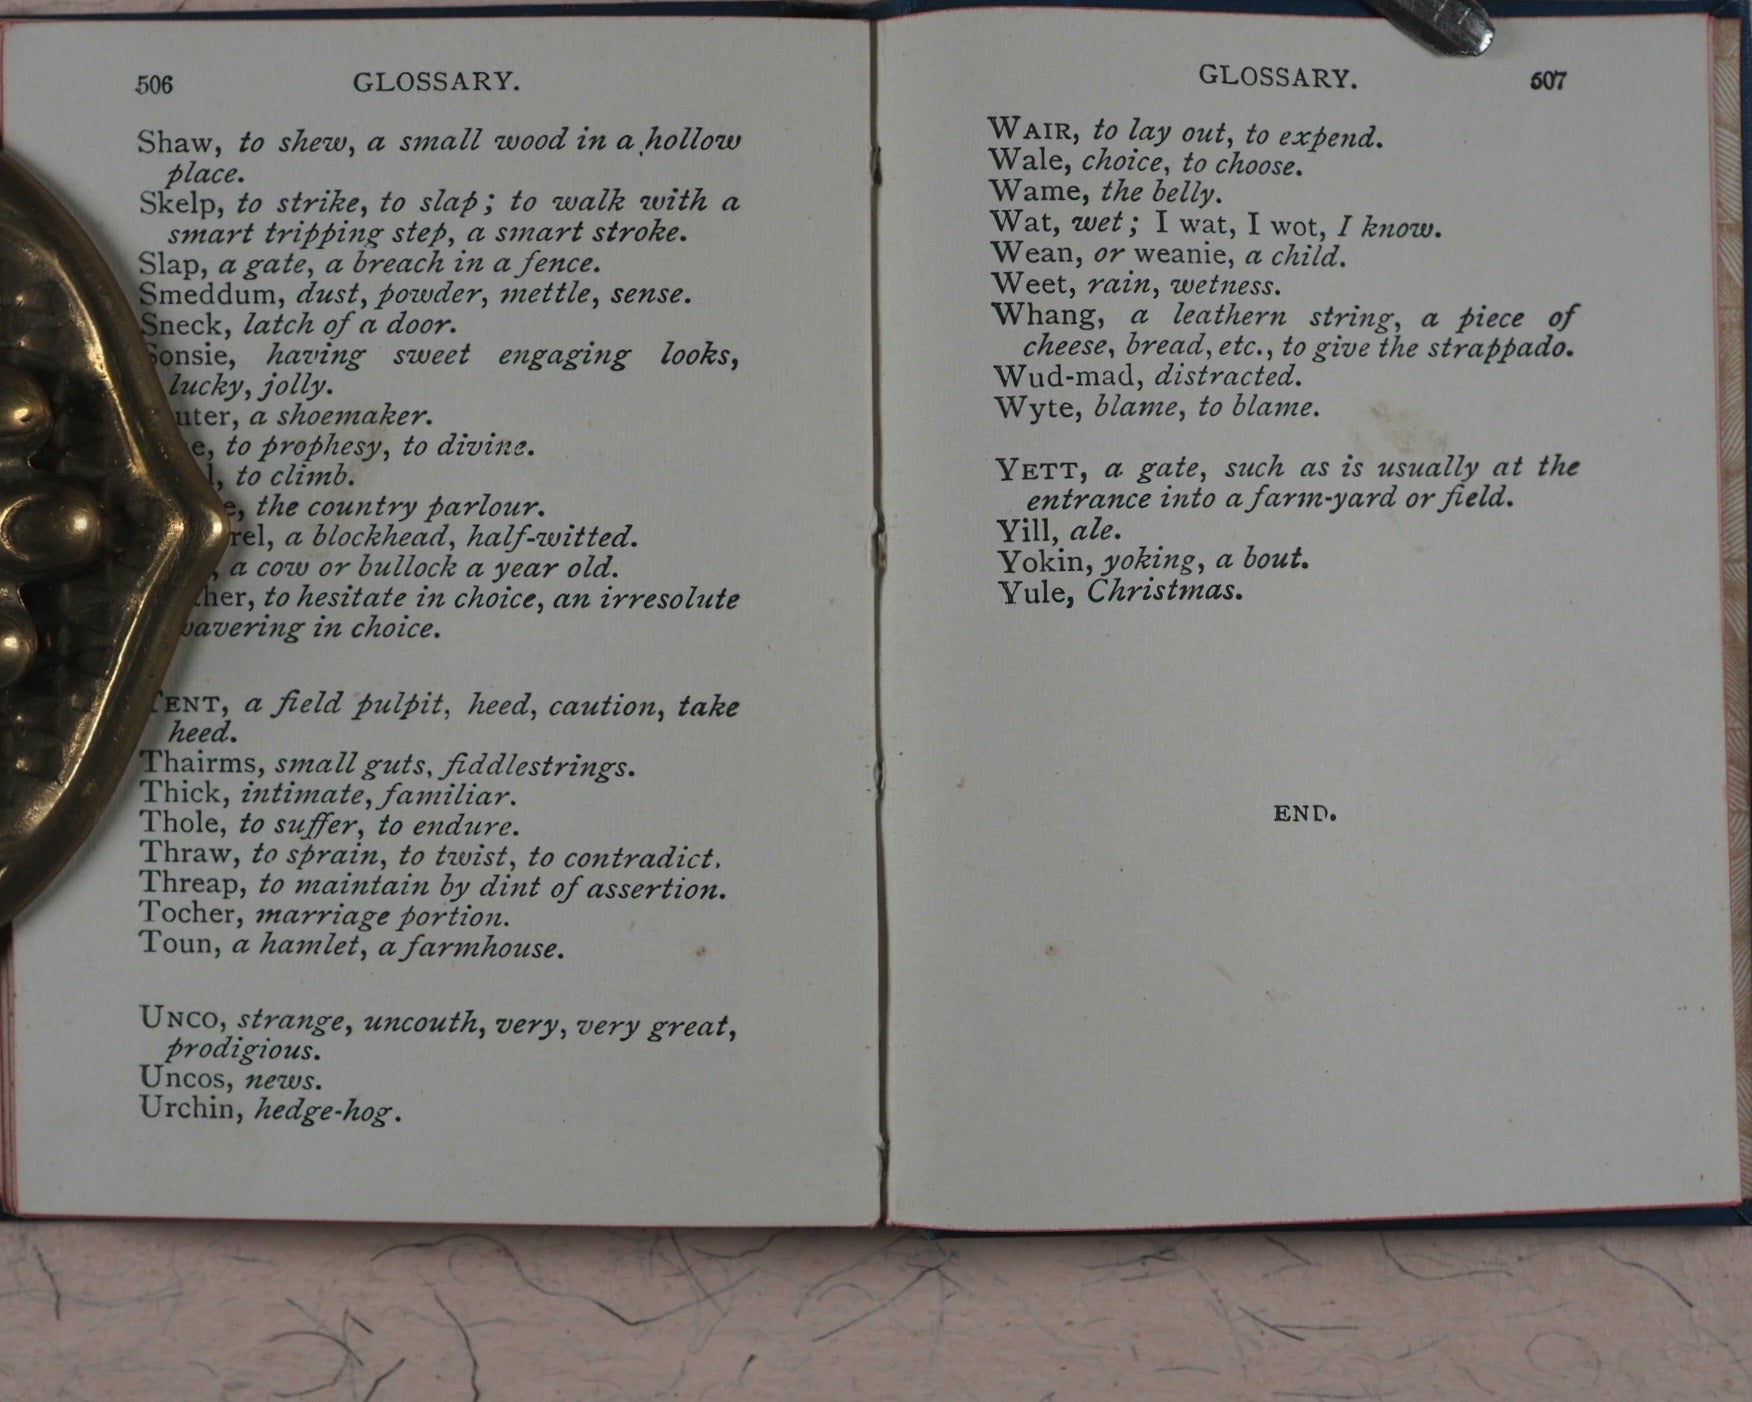 506 GLOSSARY.
Shaw, to shew, a small wood in a hollow
place.
Skelp, to strike, to slap; to walk with a
smart tripping step, a smart stroke.
Slap, a gate, a breach in a fence.
Smeddum, dust, powder, mettle, sense.
Sneck, latch of a door.
Sonsie, having sweet engaging looks,
lucky, jolly.
a shoemaker.
to prophesy, to divine.
to climb.
the country parlour.
a blockhead, half-witted.
a cow or bullock a year old.
to hesitate in choice, an irresolute
wavering in choice.
TENT, a field pulpit, heed, caution, take
heed.
Thairms, small guts, fiddlestrings.
Thick, intimate, familiar.
Thole, to suffer, to endure.
Thraw, to sprain, to twist, to contradict.
Threap, to maintain by dint of assertion.
Tocher, marriage portion.
Toun, a hamlet, a farmhouse.
UNCO, strange, uncouth, very, very great,
prodigious.
Uncos, news.
Urchin, hedge-hog.
GLOSSARY. 507
WAIR, to lay out, to expend.
Wale, choice, to choose.
Wame, the belly.
Wat, wet; I wat, I wot, I know.
Wean, or weanie, a child.
Weet, rain, wetness.
Whang, a leathern string, a piece of
cheese, bread, etc., to give the strappado.
Wud-mad, distracted.
Wyte, blame, to blame.
YETT, a gate, such as is usually at the
entrance into a farm-yard or field.
Yill, ale.
Yokin, yoking, a bout.
Yule, Christmas.
END.